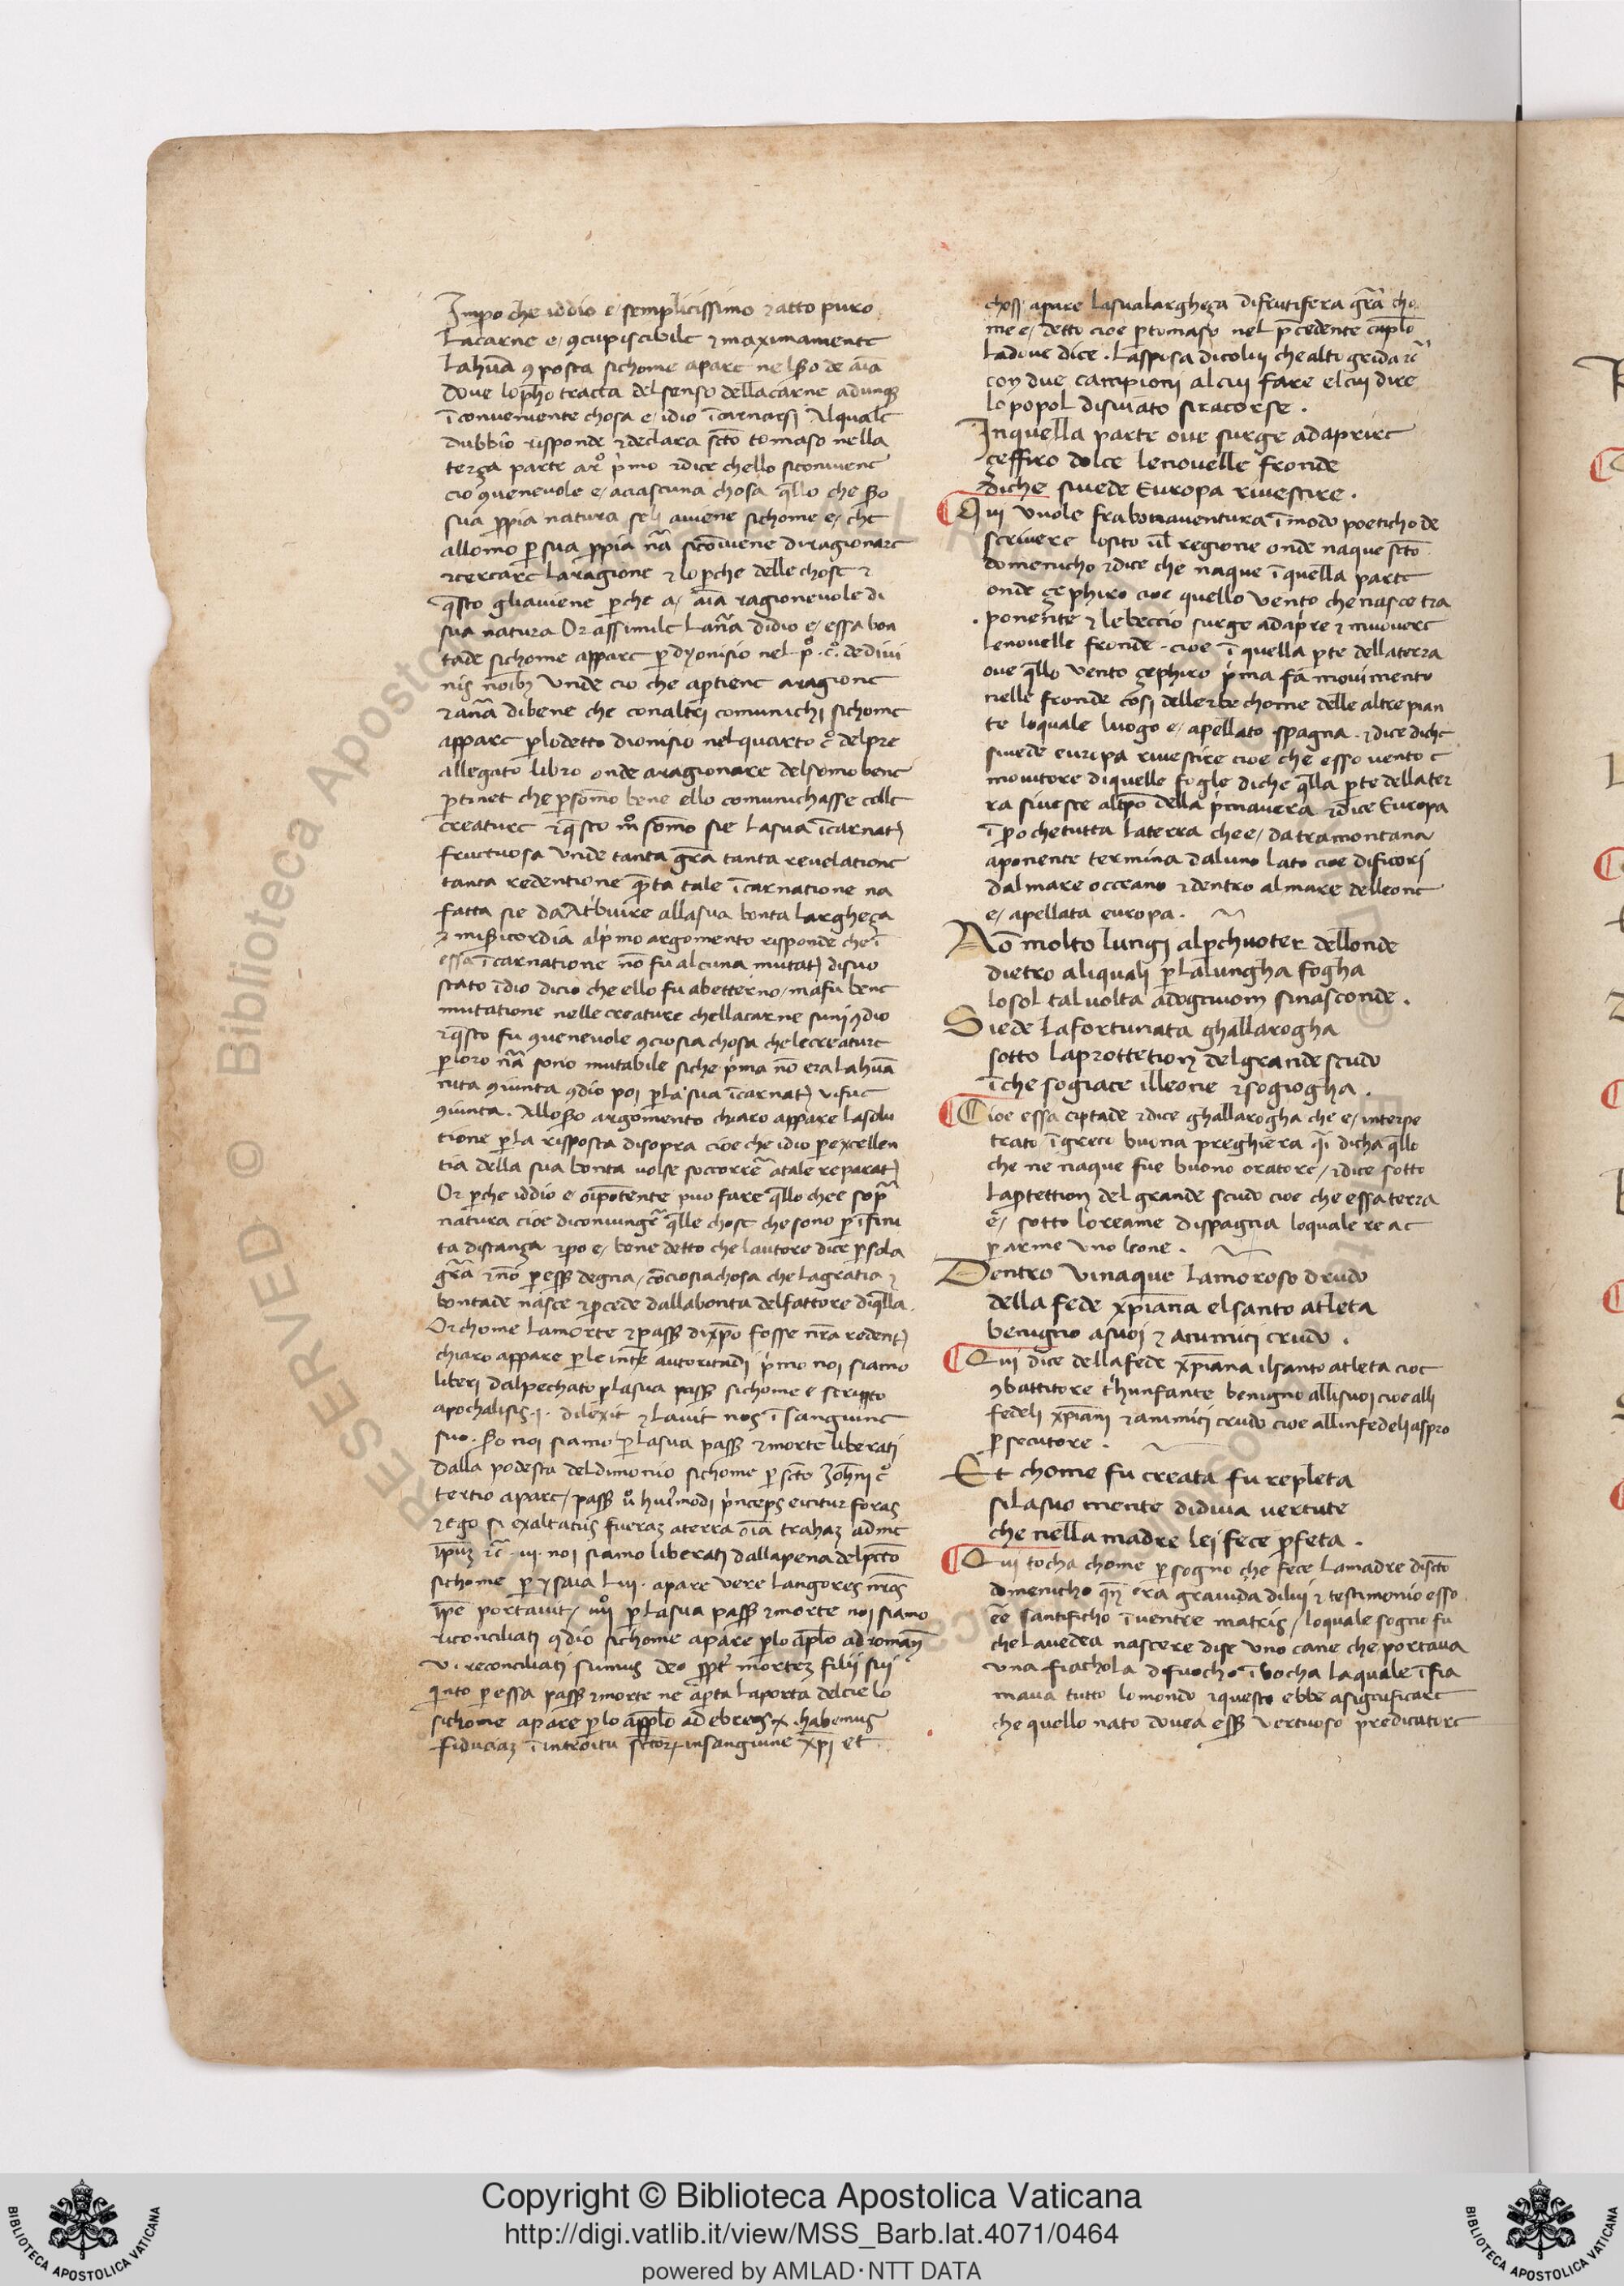 Imp̄o che iddio e/ semplicissimo ⁊ atto puro
Lacarne e/ ꝯcupiscibile ⁊ maximamente
Lahūa ꝯposta sichome apare nel de aīa
Doue lopħo tracta del senso dellacarne adunqꝫ
ī conueniente chosa e/ idio ī carnarsi Alquale
dubbio risponde ⁊ declara sc̄to tomaso nella
terza parte ar° p̍mo ⁊ dice chello siconuiene
cio ꝯueneuole e/ aciascuna chosa q̄llo che
sua ꝓpia natura seli auiene sichome e/ che
allomo ꝑ sua ꝓpia nā̄ sicōuiene diragionare
⁊ cercare Laragione ⁊ lo ꝑche delle chose ⁊
q̄sto gliauiene ꝑche a/ aīa ragioneuole di
sua natura Or assimile Lanā̄ didio e/ essa bon
tade sichome appare ꝑ dyonisio nel p° c° dediui
nis noībꝫ Vnde cio che aꝑtiene aragione
⁊ anā̄ dibene che conaltri comunichi sichome
appare ꝑlodetto dionisio nelquarto c° delpre
allegato libro onde aragionare delsomo bene
ꝑtinet che ꝑ somo bene ello comunichasse colle
creature ⁊ q̄sto m° sōmo sie Lasua ī carnatꝫ
fructuosa Vnde tanta grā̄ tanta reuelatione
tanta redentione q̄ta tale ī carnatione na
fatta sie da Atͥbuire allasua bonta Largheza
⁊ misericordia alp̍mo argomento risponde che ī
essa ī carnatione nō fu alcuna mutatꝫ disuo
stato ī dio dicio che ello fu abetterno / mafu bene
mutatione nelle creature chellacarne suni ꝯdio
⁊ q̄sto fu ꝯueneuole ꝯciosia chosa chelecreature
ꝑloro nā̄ sono mutabile siche p̍ma nō era Lahūa
nita ꝯiunta ꝯdio poi ꝑla sua ī carnatꝫ ui fue
ꝯiunta. Allo argomento chiaro appare Lasolu
tione ꝑla risposta disopra cioe che idio ꝑ excellen
tia della sua bonta uolse soccorrē atale reparatꝫ
Or ꝑche iddio e/ oīpotente puo fare q̄llo che e sop̄
natura cioe diconiungr̄ q̄lle chose che sono ꝑ īfini
ta distanza ⁊ ꝑo e/ bene detto che lautore dice ꝑ sola
grā̄ ⁊ nō ꝑ esse degna / cōciosiachosa che Lagratia ⁊
bontade nasce ⁊ ꝓcede dallabonta delfattore diq̄lla.
Or chome Lamorte ⁊ passꝫ dixp̄o fosse nrā̄ redentꝫ
chiaro appare ꝑle autoritadi p̍mo noi siamo
liberi dalpechato ꝑlasua passꝫ sichome e scripto
apochalisis .i. dilexit ⁊ Lauit nos ī sanguine
suo. noi siamo ꝑ Lasua passꝫ ⁊ morte liberati
dalla podesta deldimonio sichome ꝑ sc̄to c°
tertio apare / passꝫ p̍nceps eicitur foras
⁊ ego si exaltatus fueraꝫ aterra oīa trahaꝫ adme
īpuꝫ ⁊c̄ .iii. noi siamo liberati dallapena delpc̄to
sichome ꝑ ysaia Liii. apare vere Langores nrōs
īpe portauit / iiii° ꝑ Lasua passꝫ ⁊ morte noi siamo
riconciliati ꝯdio sichome apare ꝑlo apl̄o ad romanꝫ
v. reconciliati sumus deo mortem filii sui
qͥnto ꝑ essa passꝫ ⁊ morte ne aꝑta Laporta delcielo
sichome apare ꝑlo appl̄o ad ebreos x. habemus
fiduciaꝫ ī introitu sc̄toꝝ insanguine xp̄i et
chosꝫ apare Lasualargheza difrutifera grā̄ cho
me e/ detto cioe ꝑ tomaso nel p̄cedente capl̄o
Ladoue dice. Lasposa dicolui chealto grida ⁊c̄
con due campioni alcui fare elcui dire
lo popol disuiato siracorse.
Inquella parte oue surge adaprire
zeffiro dolce lenouelle fronde
diche siuede Europa riuestire.
Qui Vuole frabonauentura ī modo poeticho de
scriuere losito ul̄ regione onde naque sc̄to
domenicho ⁊ dice che naque ī quella parte
onde zephiro cioe quello vento chenasce tra
ponente ⁊ lebeccio surge adapre ⁊ muouere
lenouelle fronde. cioe ī quella ꝑte dellaterra
oue q̄llo vento zephiro p̍ma fa mouimento
nelle fronde cosi dellerbe chome delle altre pian
te loquale luogo e/ apellato spagna. ⁊ dice diche
siuede europa riuestire cioe che esso uento e
mouitore diquelle fogle diche q̄lla ꝑte dellater
ra siueste altꝑo della p̍mauera ⁊ dice Europa
īꝑo chetutta Laterra che e/ da tramontana
aponente termina daluno lato cioe difuori
dalmare occeano ⁊ dentro almare delleone
e/ apellata europa.
Nō molto lungi alꝑchuoter dellonde
dietro aliquali ꝑ Lalungha fogha
losol taluolta adogniuom sinasconde.
Siede Lafortunata ghallarogha
sotto laprottetionꝫ delgrande scudo
ī che sogiace illeone ⁊ sogiogha.
Cioe essa ciptade ⁊ dice ghallarogha che e/ interpe
trato ī greco buona preghiera qͥ dicha q̄llo
che ne naque fue buono oratore / ⁊ dice sotto
Laꝓtettionꝫ del grande scudo cioe che essa terra
e/ sotto loreame dispagna loquale re ae
ꝑ arme vno leone.
Dentro Vinaque Lamoroso drudo
della fede xp̄iana elsanto atleta
benigno asuoi ⁊ animici crudo.
Qui dice dellafede xp̄iana ilsanto atleta cioe
ꝯbattitore thunfante benigno allisuoi cioe alli
fedeli xp̄iani ⁊ animici crudo cioe allinfedeli aspro
ꝑsecutore.
Et chome fu creata fu repleta
silasuo mente diuiua uertute
che nella madre lei fece ꝓfeta.
Qui tocha chome ꝑ sogno che fece Lamadre disc̄to
domenicho qn̄ era grauida dilui ⁊ testimonio esso
eē santificho ī uentre matris / loquale sogno fu
chelauedea nascere dise vno cane che portaua
vna fiachola difuocho ī bocha laquale īfia
maua tutto lomondo ⁊ questo ebbe asignificare
che quello nato douea essꝫ vertuoso predicatore
Copyright © Biblioteca Apostolica Vaticana
http://digi.vatlib.it/view/MSS_Barb.lat.4071/0464
powered by AMLAD·NTT DATA
BIBLIOTECA APOSTOLICA VATICANA
BIBLIOTECA APOSTOLICA VATICANA